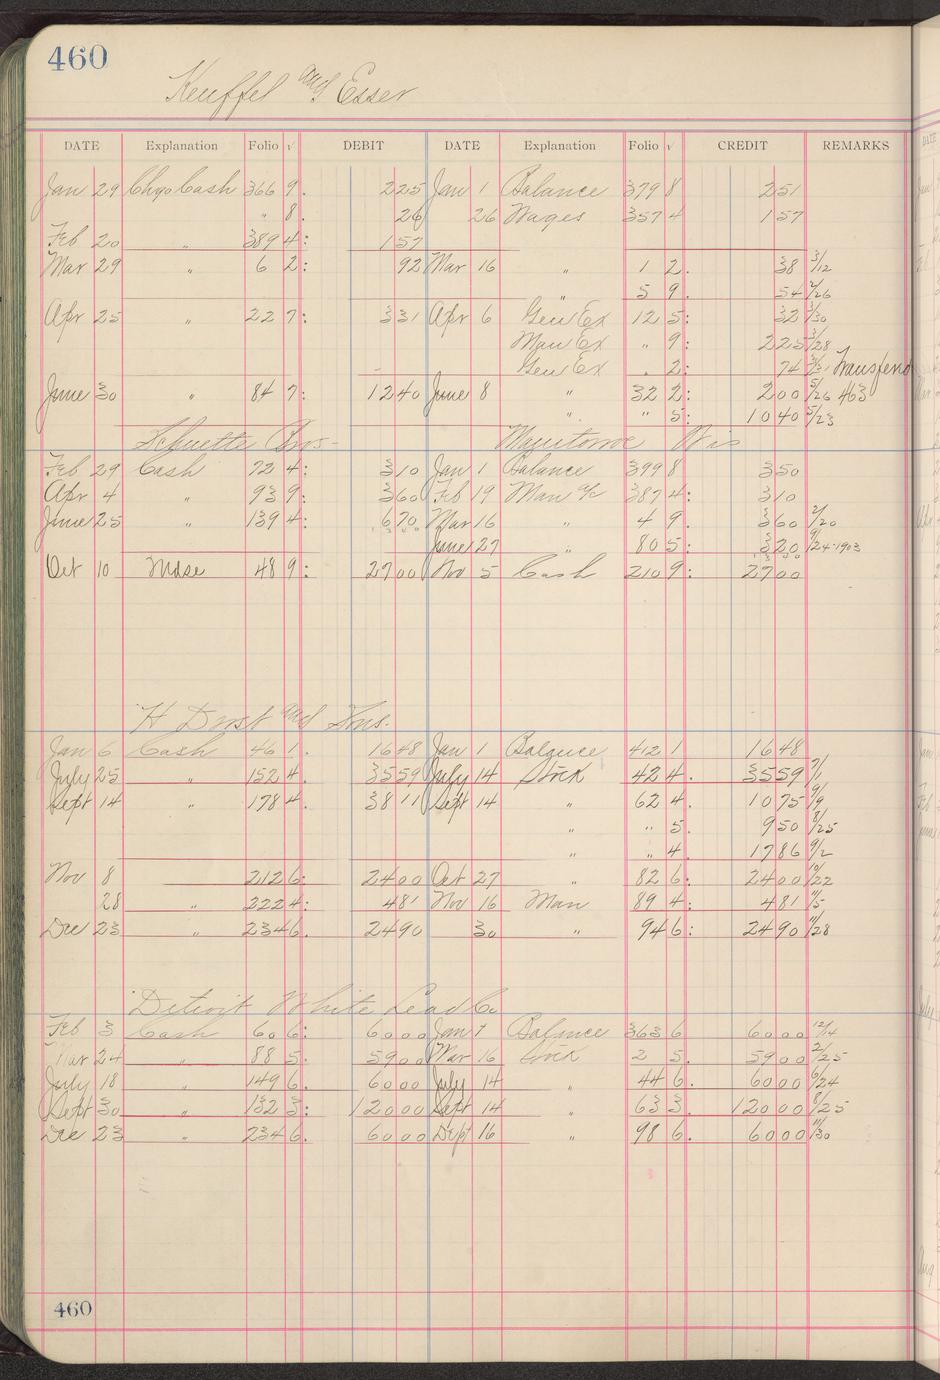 460
Keuffel and Esser
DATE Explanation Folio √ DEBIT DATE Explanation Folio √ CREDIT REMARKS
Jan 29 Chgo Cash 366 9. 225 Jan 1 Balance 379 8 251
" 8. 26 26 Wages 357 4 157
Feb 20 " 389 4: 157
Mar 29 " 6 2: 92 Mar 16 " 1 2. 38 3/12
" 5 9. 54 2/26
Apr 25 " 22 7: 331 Apr 6 Gen Ex 12 5: 32 3/30
Man Ex " 9: 225 3/28
Gen Ex " 2: 74 Transferd
June 30 " 84 7: 1240 June 8 " 32 2: 200 5/26 463
" " 5: 1040 5/23
Schuette Bros- Manitowoc Wis
Feb 29 Cash 72 4: 310 Jan 1 Balance 399 8 350
Apr 4 " 93 9: 360 Feb 19 Man a/c 387 4: 310
June 25 " 139 4: 670 Mar 16 " 4 9. 360 2/20
June 27 " 80 5: 320 9/24-1903
Oct 10 Mdse 48 9: 2700 Nov 5 Cash 210 9: 2700
H Drost and Sons.
Jan 6 Cash 46 1. 1648 Jan 1 Balance 412 1 1648
July 25 " 152 4. 3559 July 14 Stock 42 4. 3559 7/1
Sept 14 " 178 4. 3811 Sept 14 " 62 4. 1075 9/9
" " 5. 950 8/25
" " 4. 1786 9/2
Nov 8 212 6: 2400 Oct 27 " 82 6: 2400 10/22
28 " 222 4: 481 Nov 16 Man 89 4: 481 11/5
Dec 23 " 234 6. 2490 30 " 94 6: 2490 11/28
Detroit White Lead Co
Feb 3 Cash 60 6: 6000 Jan 1 Balance 363 6 6000 12/14
Mar 24 " 88 5. 5900 Mar 16 Stock 2 5. 5900 2/25
July 18 " 149 6. 6000 July 14 " 44 6. 6000 6/24
Sept 30 " 132 3: 12000 Sept 14 " 63 3. 12000 8/25
Dec 23 " 234 6. 6000 Dept 16 " 98 6. 6000 11/30
460